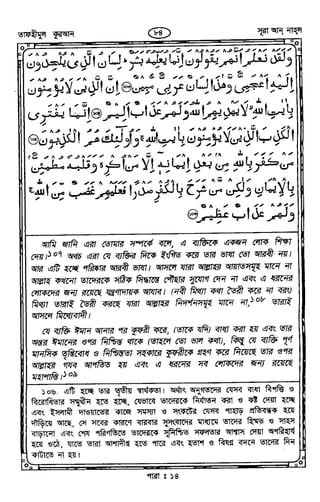 তাফহীমুল কুরআন
৮৪
সূরা আন নাহল
وَلَقَدْ نَعْلَمُ أَنَّهُمْ يَقُولُونَ إِنَّمَا يُعَلِّمُهُ بَشَرٌ ۗ لِسَانُ الَّذِي يُلْحِدُونَ
إِلَيْهِ أَعْجَمِيٌّ وَهَٰذَا لِسَانٌ عَرَبِيٌّ مُبِينٌ ﴿١٠٣﴾ إِنَّ الَّذِينَ لَا يُؤْمِنُونَ
بِآيَاتِ اللَّهِ ۙ لَا يَهْدِيهِمُ اللَّهُ وَلَهُمْ عَذَابٌ أَلِيمٌ ﴿١٠٤﴾ إِنَّمَا يَفْتَرِي
الْكَذِبَ الَّذِينَ لَا يُؤْمِنُونَ بِآيَاتِ اللَّهِ ۖ وَأُولَٰئِكَ هُمُ الْكَاذِبُونَ ﴿١٠٥﴾
مَنْ كَفَرَ بِاللَّهِ مِنْ بَعْدِ إِيمَانِهِ إِلَّا مَنْ أُكْرِهَ وَقَلْبُهُ مُطْمَئِنٌّ
بِالْإِيمَانِ وَلَٰكِنْ مَنْ شَرَحَ بِالْكُفْرِ صَدْرًا فَعَلَيْهِمْ غَضَبٌ مِنَ اللَّهِ ۚ
وَلَهُمْ عَذَابٌ عَظِيمٌ ﴿١٠٦﴾
আমি জানি এরা তোমার সম্পর্কে বলে, এ ব্যক্তিকে একজন লোক শিক্ষা
দেয়।১০৭ অথচ এরা যে ব্যক্তির দিকে ইংগিত করে তার ভাষা তো আরবী নয়।
আর এটি হচ্ছে পরিষ্কার আরবী ভাষা। আসলে যারা আল্লাহর আয়াতসমূহ মানে না
আল্লাহ কখনো তাদেরকে সঠিক সিদ্ধান্তে পৌঁছার সুযোগ দেন না এবং এ ধরনের
লোকদের জন্য রয়েছে যন্ত্রণাদায়ক আযাব। (নবী মিথ্যা কথা তৈরী করে না বরং)
মিথ্যা তারাই তৈরী করছে যারা আল্লাহর নিদর্শনসমূহ মানে না,১০৮ তারাই
আসলে মিথ্যেবাদী।
যে ব্যক্তি ঈমান আনার পর কুফরী করে, (তাকে যদি) বাধ্য করা হয় এবং তার
অন্তর ঈমানের ওপর নিশ্চিন্ত থাকে (তাহলে তো ভাল কথা), কিন্তু যে ব্যক্তি পূর্ণ
মানসিক তৃপ্তিবোধ ও নিশ্চিন্ততা সহকারে কুফরীকে গ্রহণ করে নিয়েছে তার ওপর
আল্লাহর গযব আপতিত হয় এবং এ ধরনের সব লোকদের জন্য রয়েছে
মহাশাস্তি।১০৯
১০৬. এটি হচ্ছে তার তৃতীয় স্বার্থকতা। অর্থাৎ অনুগতদের যেসব বাধা বিপত্তি ও
বিরোধিতার সম্মুখীন হতে হচ্ছে, যেভাবে তাদেরকে নির্যাতন করা ও কষ্ট দেয়া হচ্ছে
এবং ইসলামী দাওয়াতের কাজে সমস্যা ও সংকটের যেসব পাহাড় প্রতিবন্ধক হয়ে
দাঁড়িয়ে আছে, সে সবের কারণে বারবার সুসংবাদের মাধ্যমে তাদের হিম্মত ও সাহস
বাড়ানো এবং শেষ পরিণতিতে তাদেরকে সুনিশ্চিত সফলতার আশ্বাস দেয়া অপরিহার্য
হয়ে ওঠে, যাতে তারা আশাদীপ্ত হতে পারে এবং হতাশ ও বিষণ্ন বদনে তাদের দিন
কাটাতে না হয়।
পারা : ১৪